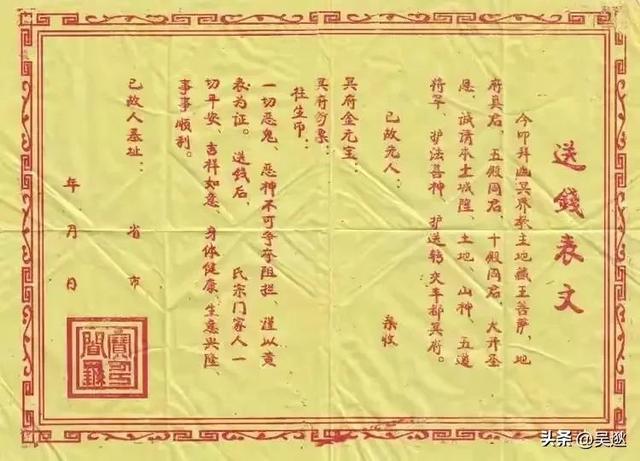 送錢表文
今叩拜幽冥界教主地藏王菩萨,地
府真君,五殿闫君,十殿闫君,大开圣
恩,诚请本土城隍、土地、山神、五道
将军,护法喜神,护送转交丰都冥府。
已故亡人: 亲收
冥府金元宝:
冥府票:
往生币:
一切恶鬼 恶神不可争夺阻拦,谨以黄
表为证。送钱后, 氏宗门家人一
切平安、吉祥如意、身体健康、生意兴隆、
事事顺利。
已故人墓址: 省 市
年 月 日
头条 @吴逖